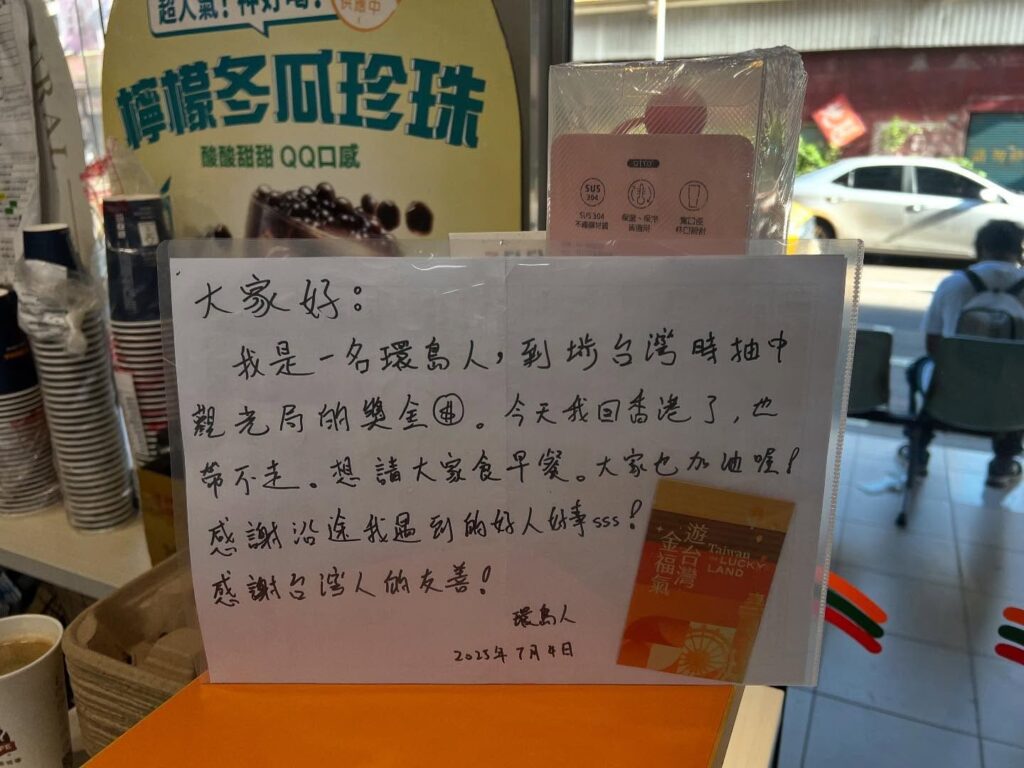 超人氣！神好喝！
供應中
檸檬冬瓜珍珠
酸酸甜甜 QQ口感
SUS
304
SUS 304
大家好：
我是一名環島人，到埗台灣時抽中
觀光局的獎金。今天我回香港了，也
帶不走。想請大家食早餐。大家也加油喔！
感謝沿途我遇到的好人好事sss！
感謝台灣人的友善！
環島人
2025年7月4日
遊台灣
金福氣
Taiwan
the LUCKY
LAND